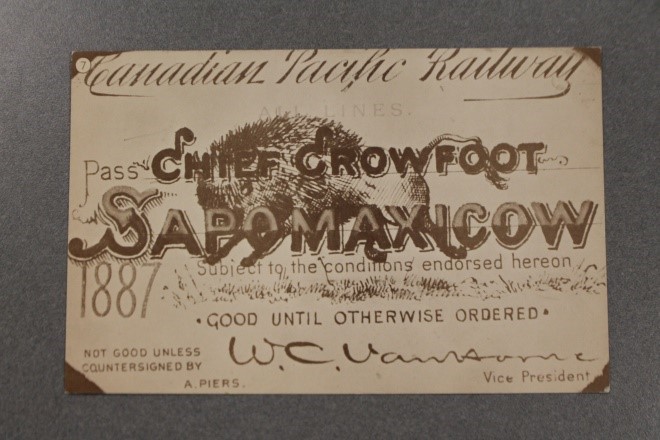 Canadian Pacific Railway
ALL LINES.
Pass CHIEF CROWFOOT
SAPOMAXICOW
1887 Subject to the conditions endorsed hereon
·GOOD UNTIL OTHERWISE ORDERED·
NOT GOOD UNLESS
COUNTERSIGNED BY
A. PIERS.
W.C. Van Horne
Vice President